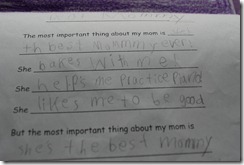 The most important thing about my mom is
th best mommy ever!
She bakes with me!
She helps me practice
She likes me to be good
But the most important thing about my mom is
she's the best mommy